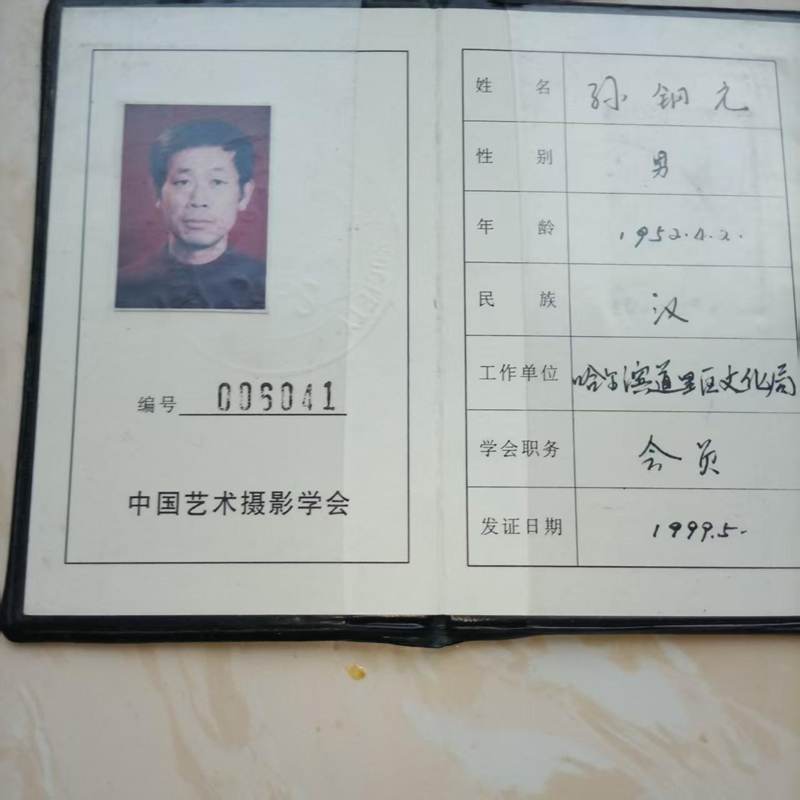 编号 006041
中国艺术摄影学会
姓名 孙钢元
性别 男
年龄 1952.4.2.
民族 汉
工作单位 哈尔滨道里区文化局
学会职务 会员
发证日期 1999.5.